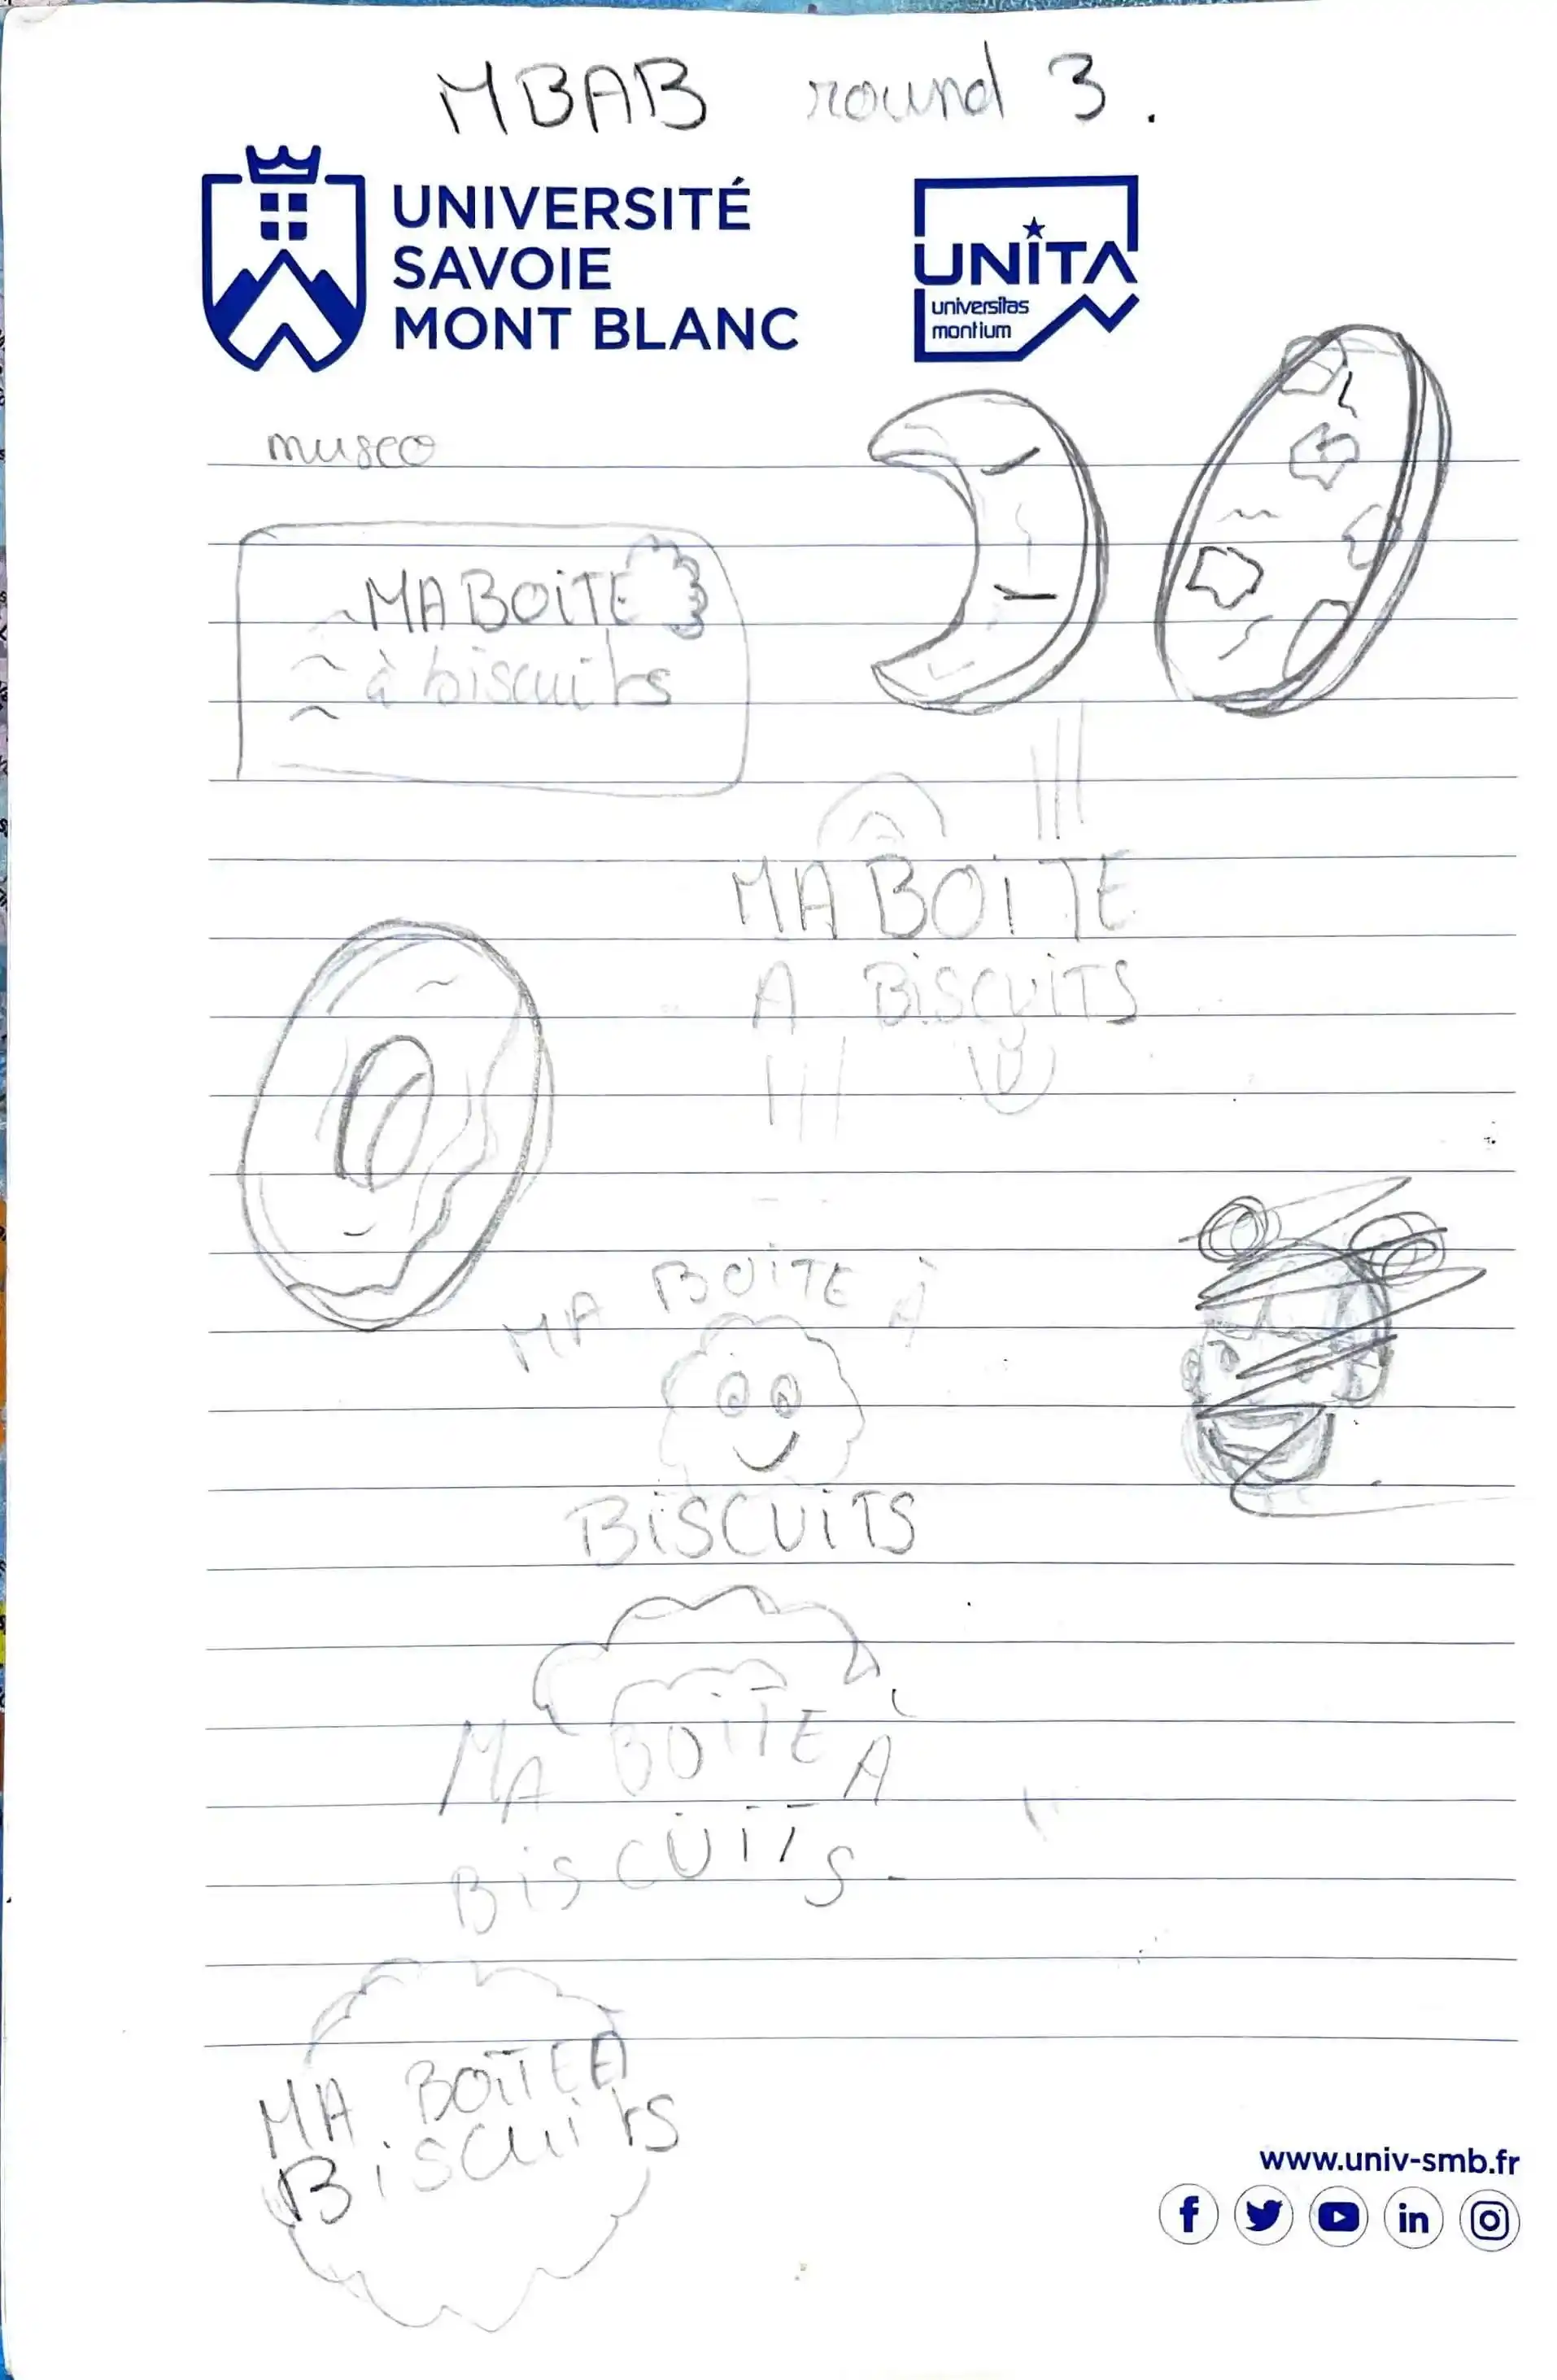 MBAB round 3.
UNIVERSITÉ
SAVOIE
MONT BLANC
UNITA
universitas
montium
museo
MA BOiTE
à biscuits
MA BOiTE
A BiSCUiTS
MA BOÎTE À
BiSCUiTS
MA BOÎTE À
BiSCUiTS
MA BOÎTE A
BiSCUits
www.univ-smb.fr
f
in